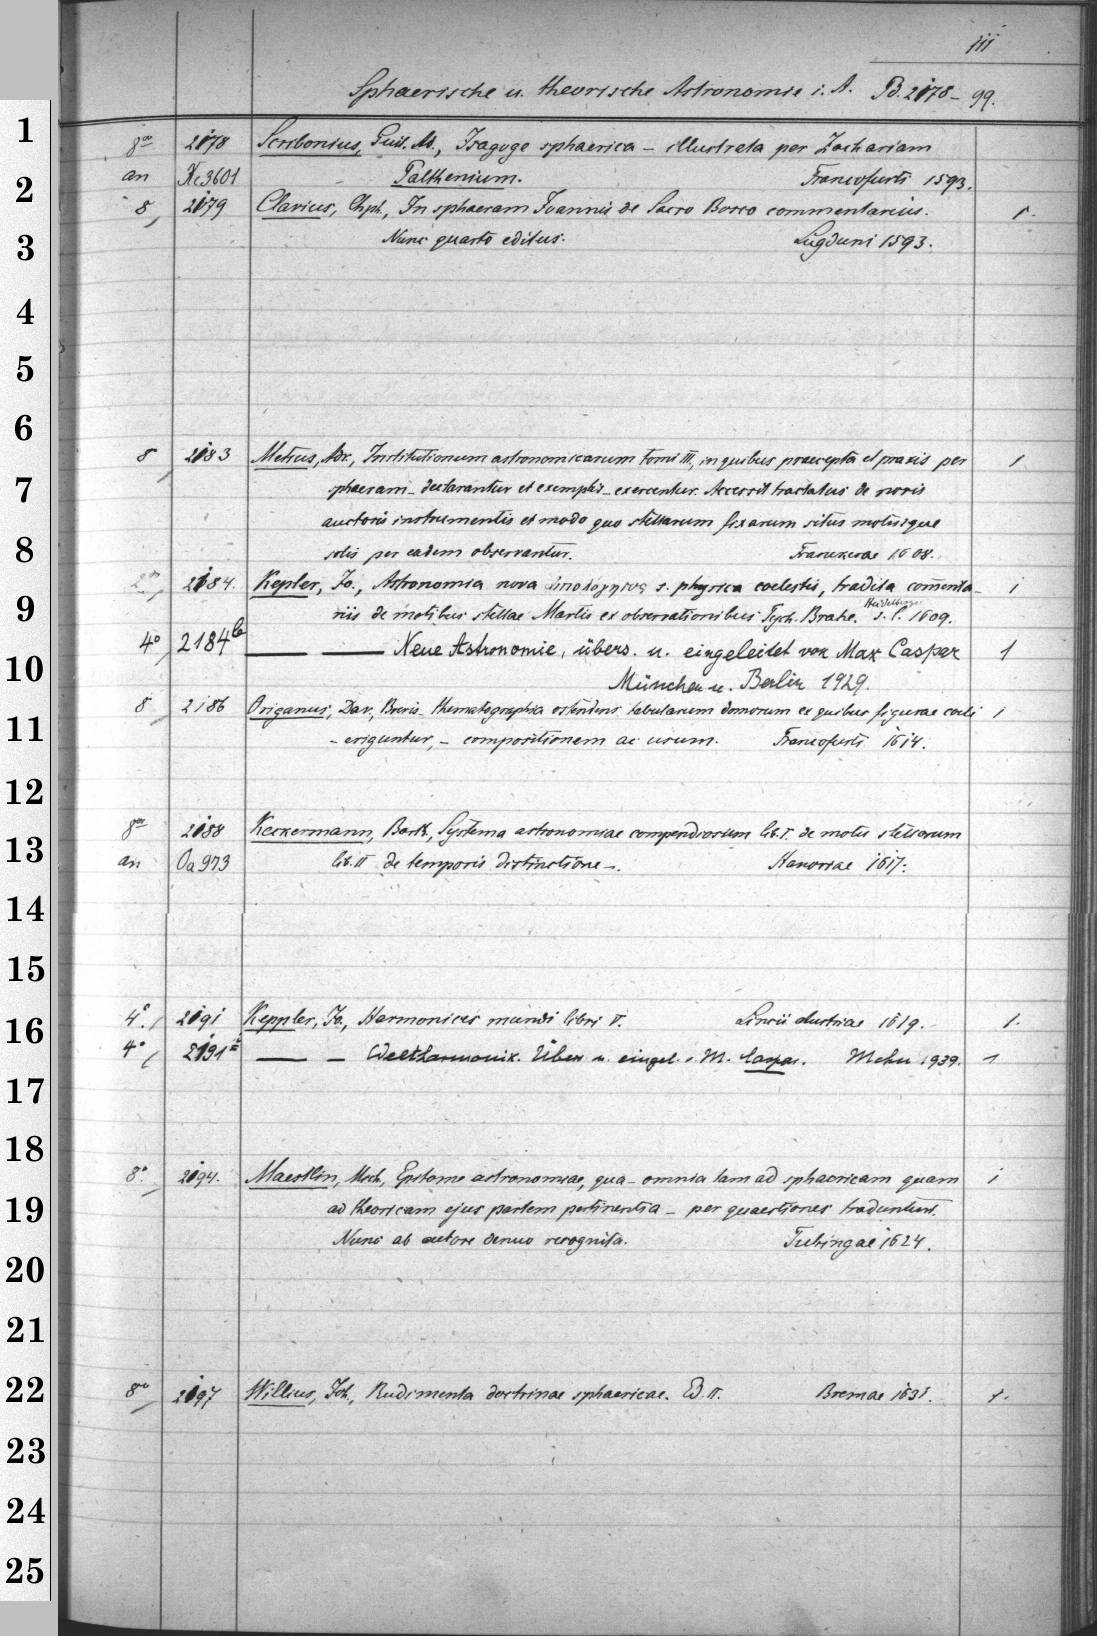 111
Sphaerische u. theorische Astronomie i. A. B. 2178-99.
1
8vo 2178 Scribonius, Guil. Ad., Isagoge sphaerica – illustrata per Zachariam
an Xc3601 Palthenium. Francofurti 1593.
2
8 2179 Clavius, Chph., In sphaeram Joannis de Sacro Bosco commentarius. 1.
3
Nunc quarto editus. Lugduni 1593.
4
5
6
8 2183 Metius, Adr., Institutionum astronomicarum tomi III, in quibus praecepta et praxis per 1
7
sphaeram – declarantur et exemplis – exercentur. Accessit tractatus de novis
auctoris instrumentis et modo quo stellarum fixarum situs motusque
8
solis per eadem observantur. Franekerae 1608.
2184. Kepler, Jo., Astronomia nova αιτιολόγητος s. physica coelestis, tradita commenta- 1
9
Heidelbergae
riis de motibus stellae Martis ex observationibus Tych. Brahe. s. l. 1609.
4° 2184b — — Neue Astronomie, übers. u. eingeleitet von Max Caspar 1
10
München u. Berlin 1929.
8 2186 Origanus, Dav., Brevis – thematographia ostendens tabularum domorum ex quibus figurae coeli 1
11
– eriguntur, – compositionem ac usum. Francofurti 1614.
12
8vo 2188 Keckermann, Barth., Systema astronomiae compendiosum lib. I. de motu stellarum
13
an Oa973 lib. II de temporis distinctione –. Hanoviae 1617.
14
15
4° 2191 Keppler, Jo., Harmonices mundi libri V. Lincii Austriae 1619. 1.
16
4° 2191a — — Weltharmonik. Übers u. eingel. v. M. Caspar. Mchn 1939. 1
17
18
8° 2194. Maestlin, Mich., Epitome astronomiae, qua – omnia tam ad sphaericam quam 1
19
ad theoricam ejus partem pertinentia – per quaestiones traduntur.
Nunc ab autore denuo recognita. Tubingae 1624.
20
21
22
8vo 2197 Willius, Joh., Rudimenta doctrinae sphaericae. Ed. II. Bremae 1631. 1.
23
24
25